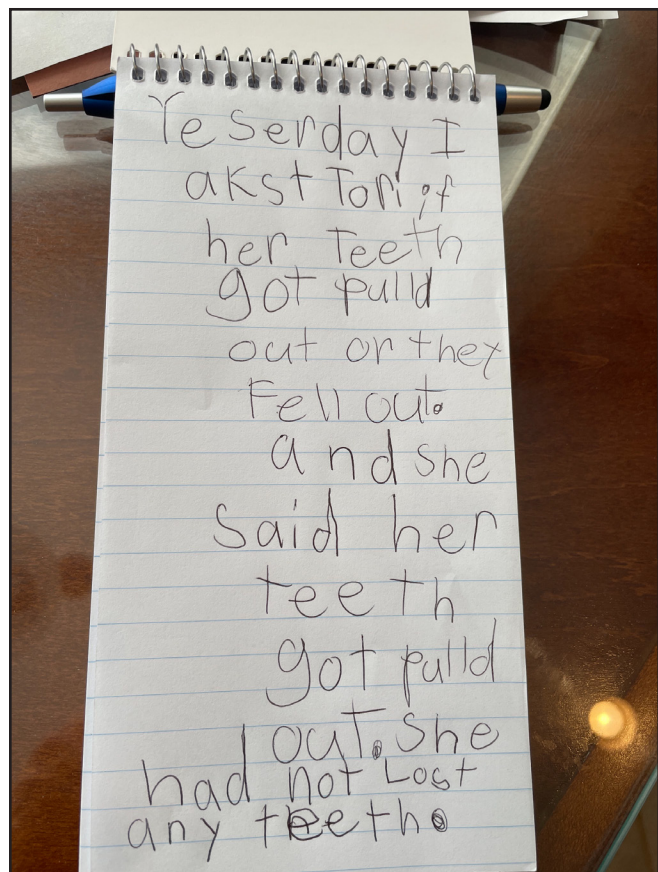 Yeserday I
akst Tori if
her Teeth
got pulld
out or they
Fell out.
and she
Said her
teeth
got pulld
out. She
had not Lost
any teeth.